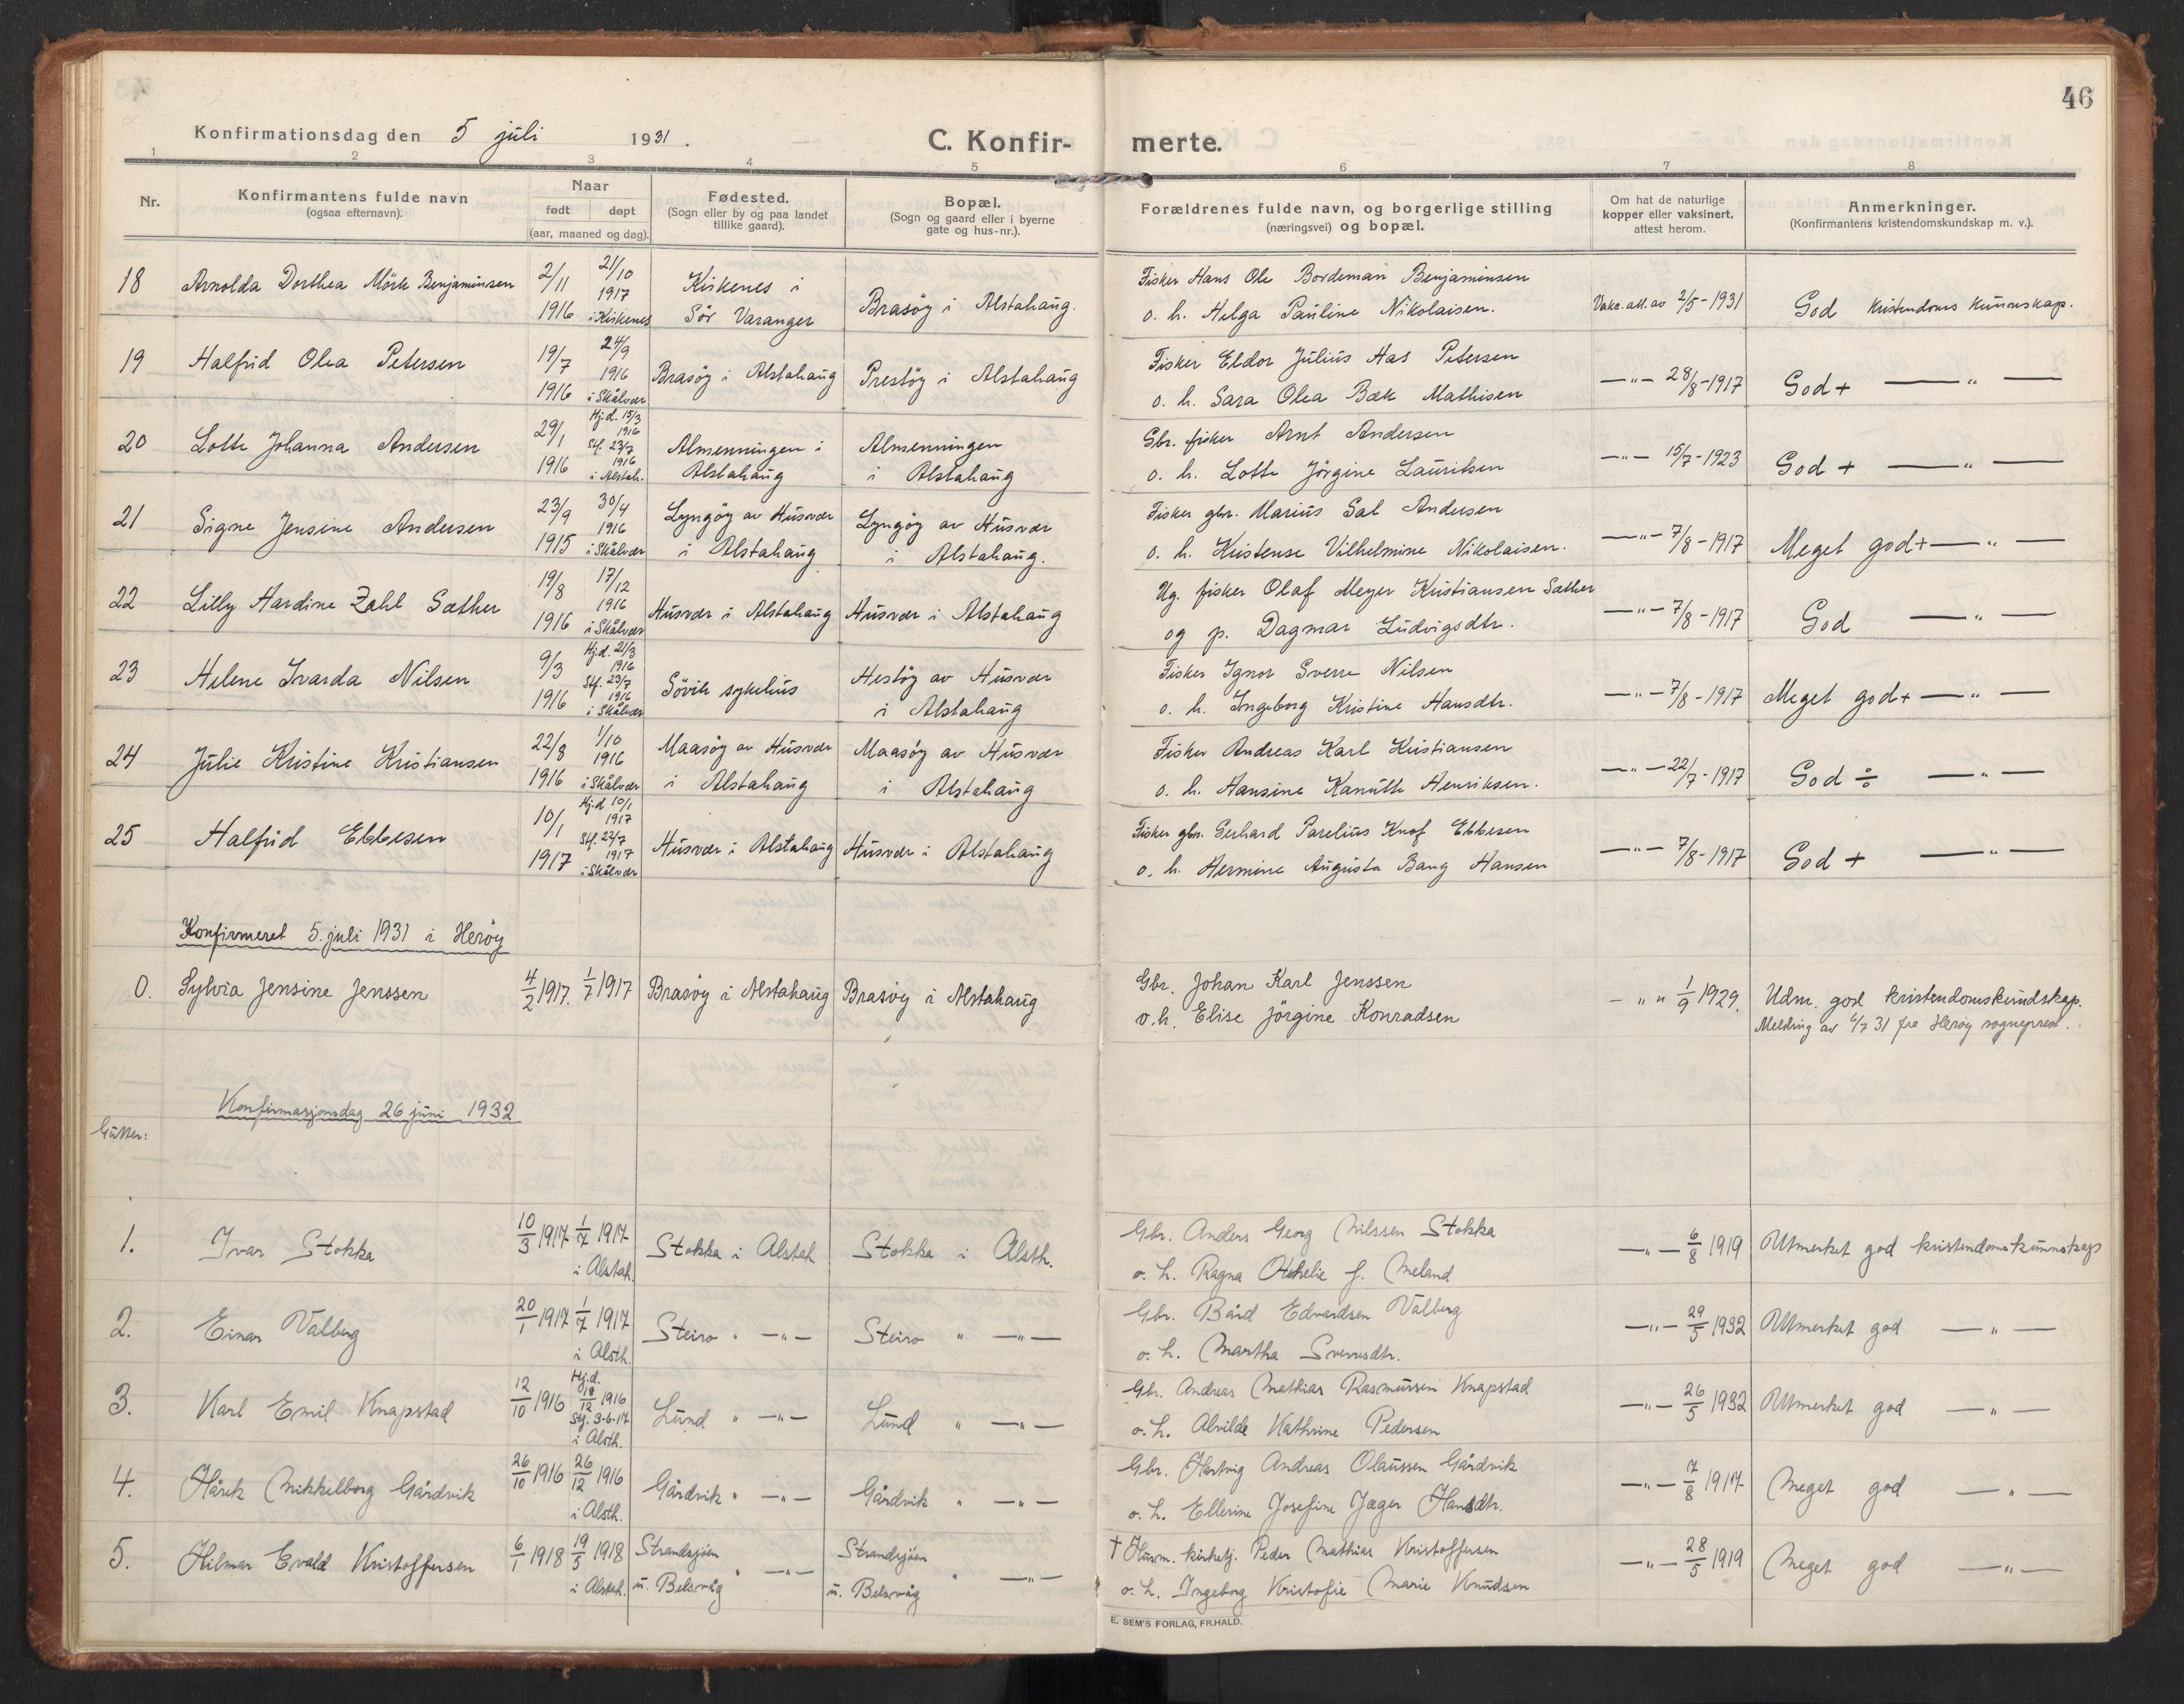 46
Konfirmationsdag den 5 juli 1931.
C. Konfir- merte.
1 2 3 4 5 6 7 8
Nr.
Konfirmantens fulde navn
(ogsaa efternavn).
Naar
født døpt
(aar, maaned og dag).
Fødested.
(Sogn eller by og paa landet
tillike gaard).
Bopæl.
(Sogn og gaard eller i byerne
gate og hus-nr.).
Forældrenes fulde navn, og borgerlige stilling
(næringsvei) og bopæl.
Om hat de naturlige
kopper eller vaksinert,
attest herom.
Anmerkninger.
(Konfirmantens kristendomskundskap m. v.).
18 Arnolda Dorthea Mörk Benjaminsen
2/11 1916
21/10 1917 i Kirkenes
Kirkenes i
Sör Varanger
Brasöy i Alstahaug.
Fisker Hans Ole Bordeman Benjaminsen
o. h. Helga Pauline Nikolaisen.
Vakc. att. av 2/5-1931
God kristendoms kunnskap.
19 Halfrid Olea Petersen
19/7 1916
24/9 1916 i Skålvær
Brasöy i Alstahaug
Prestöy i Alstahaug
Fisker Eldor Julius Has Petersen
o. h. Sara Olea Bæk Mathisen
—"— 28/8-1917
God + —"—
20 Lotte Johanna Andersen
29/1 1916
Hj.d. 15/3 1916
Stf. 23/7 1916
i Alstah.
Almenningen i
Alstahaug
Almenningen
i Alstahaug
Gbr. fisker Arnt Andersen
o. h. Lotte Jörgine Lauritsen
—"— 15/7-1923
God + —"—
21 Signe Jensine Andersen
23/9 1915
30/4 1916 i Skålvær
Lyngöy av Husvær
i Alstahaug
Lyngöy av Husvær
i Alstahaug.
Fisker gbr. Marius Sal Andersen
o. h. Kristense Vilhelmine Nikolaisen.
—"— 7/8-1917
Meget god + —"—
22 Lilly Hardine Zahl Sæther
19/8 1916
17/12 1916 i Skålvær
Husvær i Alstahaug
Husvær i Alstahaug
Ug. fisker Olaf Meyer Kristiansen Sæther
og p. Dagmar Ludvigsdtr.
—"— 7/8-1917
God —"—
23 Helene Ivarda Nilsen
9/3 1916
Hj.d. 21/3 1916
Stf. 23/7 1916
i Skålvær
Sövik sykehus
Hestöy av Husvær
i Alstahaug
Fisker Ignor Sverre Nilsen
o. h. Ingeborg Kristine Hansdtr.
—"— 7/8-1917
Meget god + —"—
24 Julie Kristine Kristiansen
22/8 1916
1/10 1916 i Skålvær
Maasöy av Husvær
i Alstahaug
Maasöy av Husvær
i Alstahaug
Fisker Andreas Karl Kristiansen
o. h. Hansine Kanutte Henriksen.
—"— 22/7-1917
God ÷ —"—
25 Halfrid Ebbesen
10/1 1917
Hj.d 10/1 1917
Stf. 22/7 1917
i Skålvær
Husvær i Alstahaug
Husvær i Alstahaug
Fisker gbr. Gerhard Parelius Knof Ebbesen
o. h. Hermine Augusta Bang Hansen
—"— 7/8-1917
God + —"—
Konfirmeret 5. juli 1931 i Herøy
0. Sylvia Jensine Jenssen
4/2 1917.
1/7 1917
Brasøy i Alstahaug
Brasøy i Alstahaug
Gbr. Johan Karl Jenssen
o.h. Elise Jörgine Konradsen
— " " 1/9 1929.
Udm. god kristendomskundskap.
Melding av 6/7 31 fra Herøy sogneprest.
Konfirmasjonsdag 26 juni 1932
Gutter:
1. Ivar Stokka
10/3 1917
1/7 1917
i Alstah.
Stokka i Alstah.
Stokka i Alsth.
Gbr. Anders Georg Nilssen Stokka
o. h. Ragna Othelie f. Meland
—"— 6/8 1919
Utmerket god kristendomskunnskap
2. Einar Valberg
20/1 1917
1/7 1917
i Alsth.
Steiro " —"—
Steiro " —"—
Gbr. Bård Edvardsen Valberg
o. h. Martha Sverresdtr.
—"— 29/5 1932
Utmerket god —"—
3. Karl Emil Knapstad
12/10 1916
Hj.d.
12 1916
Stf. 3-6-17
i Alsth.
Lund " —"—
Lund " —"—
Gbr. Andreas Mathias Rasmussen Knapstad
o. h. Alvilde Kathrine Pedersen
—"— 26/5 1932
Utmerket god —"—
4. Hårek Mikkelborg Gårdvik
26/10 1916
26/12 1916
i Alsth.
Gårdvik " —"—
Gårdvik " —"—
Gbr. Hartvig Andreas Olaussen Gårdvik
o. h. Ellerine Josefine Jæger Hansdtr.
—"— 7/8 1917
Meget god —"—
5. Hilmar Evald Kristoffersen
6/1 1918
19/5 1918
i Alstah.
Strandsjøen
u. Belsvåg " —"—
Strandsjøen
u. Belsvåg " —"—
† Husm. kirketj. Peder Mathias Kristoffersen
o. h. Ingeborg Kristofie Marie Knudsen
—"— 28/5 1919
Meget god —"—
E. SEM'S FORLAG, FR.HALD.